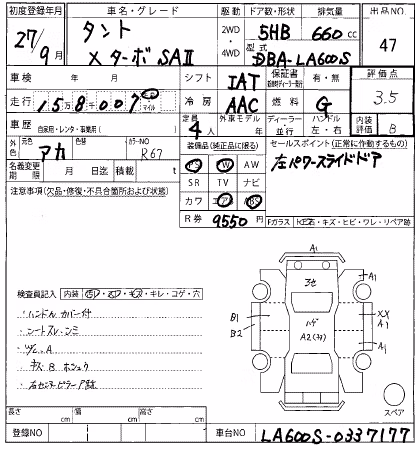 初度登録年月 車名・グレード 駆動 ドア数/形状 排気量 出品NO
27/9月 タント X ターボ SAⅡ 2WD 4WD 5HB 660cc 47
型式 DBA-LA600S
車検 年 月 シフト IAT 保証書 有・無 評価点
走行 15万8千007 マイル 冷房 AAC 燃料 G 3.5
車歴 自家用・レンタ・事業用( ) 定員 4人 外車モデル 年 ディーラー・並行 ハンドル 左・右 内装評価 B
外色 元色 アカ 色替 カラーNO R67
装備品(純正品に限る) セールスポイント(正常に作動するもの)
PS PW AW 左パワースライドドア
名義変更期限 月 日迄 積載 t
SR TV ナビ
注意事項(欠品・修復・不具合箇所および状態)
カワ エアB ABS
R券 9550円
Fガラス トビ石・キズ・ヒビ・ワレ・リペア跡
A1
3セ
A1
検査員記入 内装 キレ・コゲ・穴
ハンドル カバー付
B1
B2
ハゲ
A2
XX
A1
A1
スペア
長さ cm 幅 cm 高さ cm
登録NO 車台NO LA600S-0337177